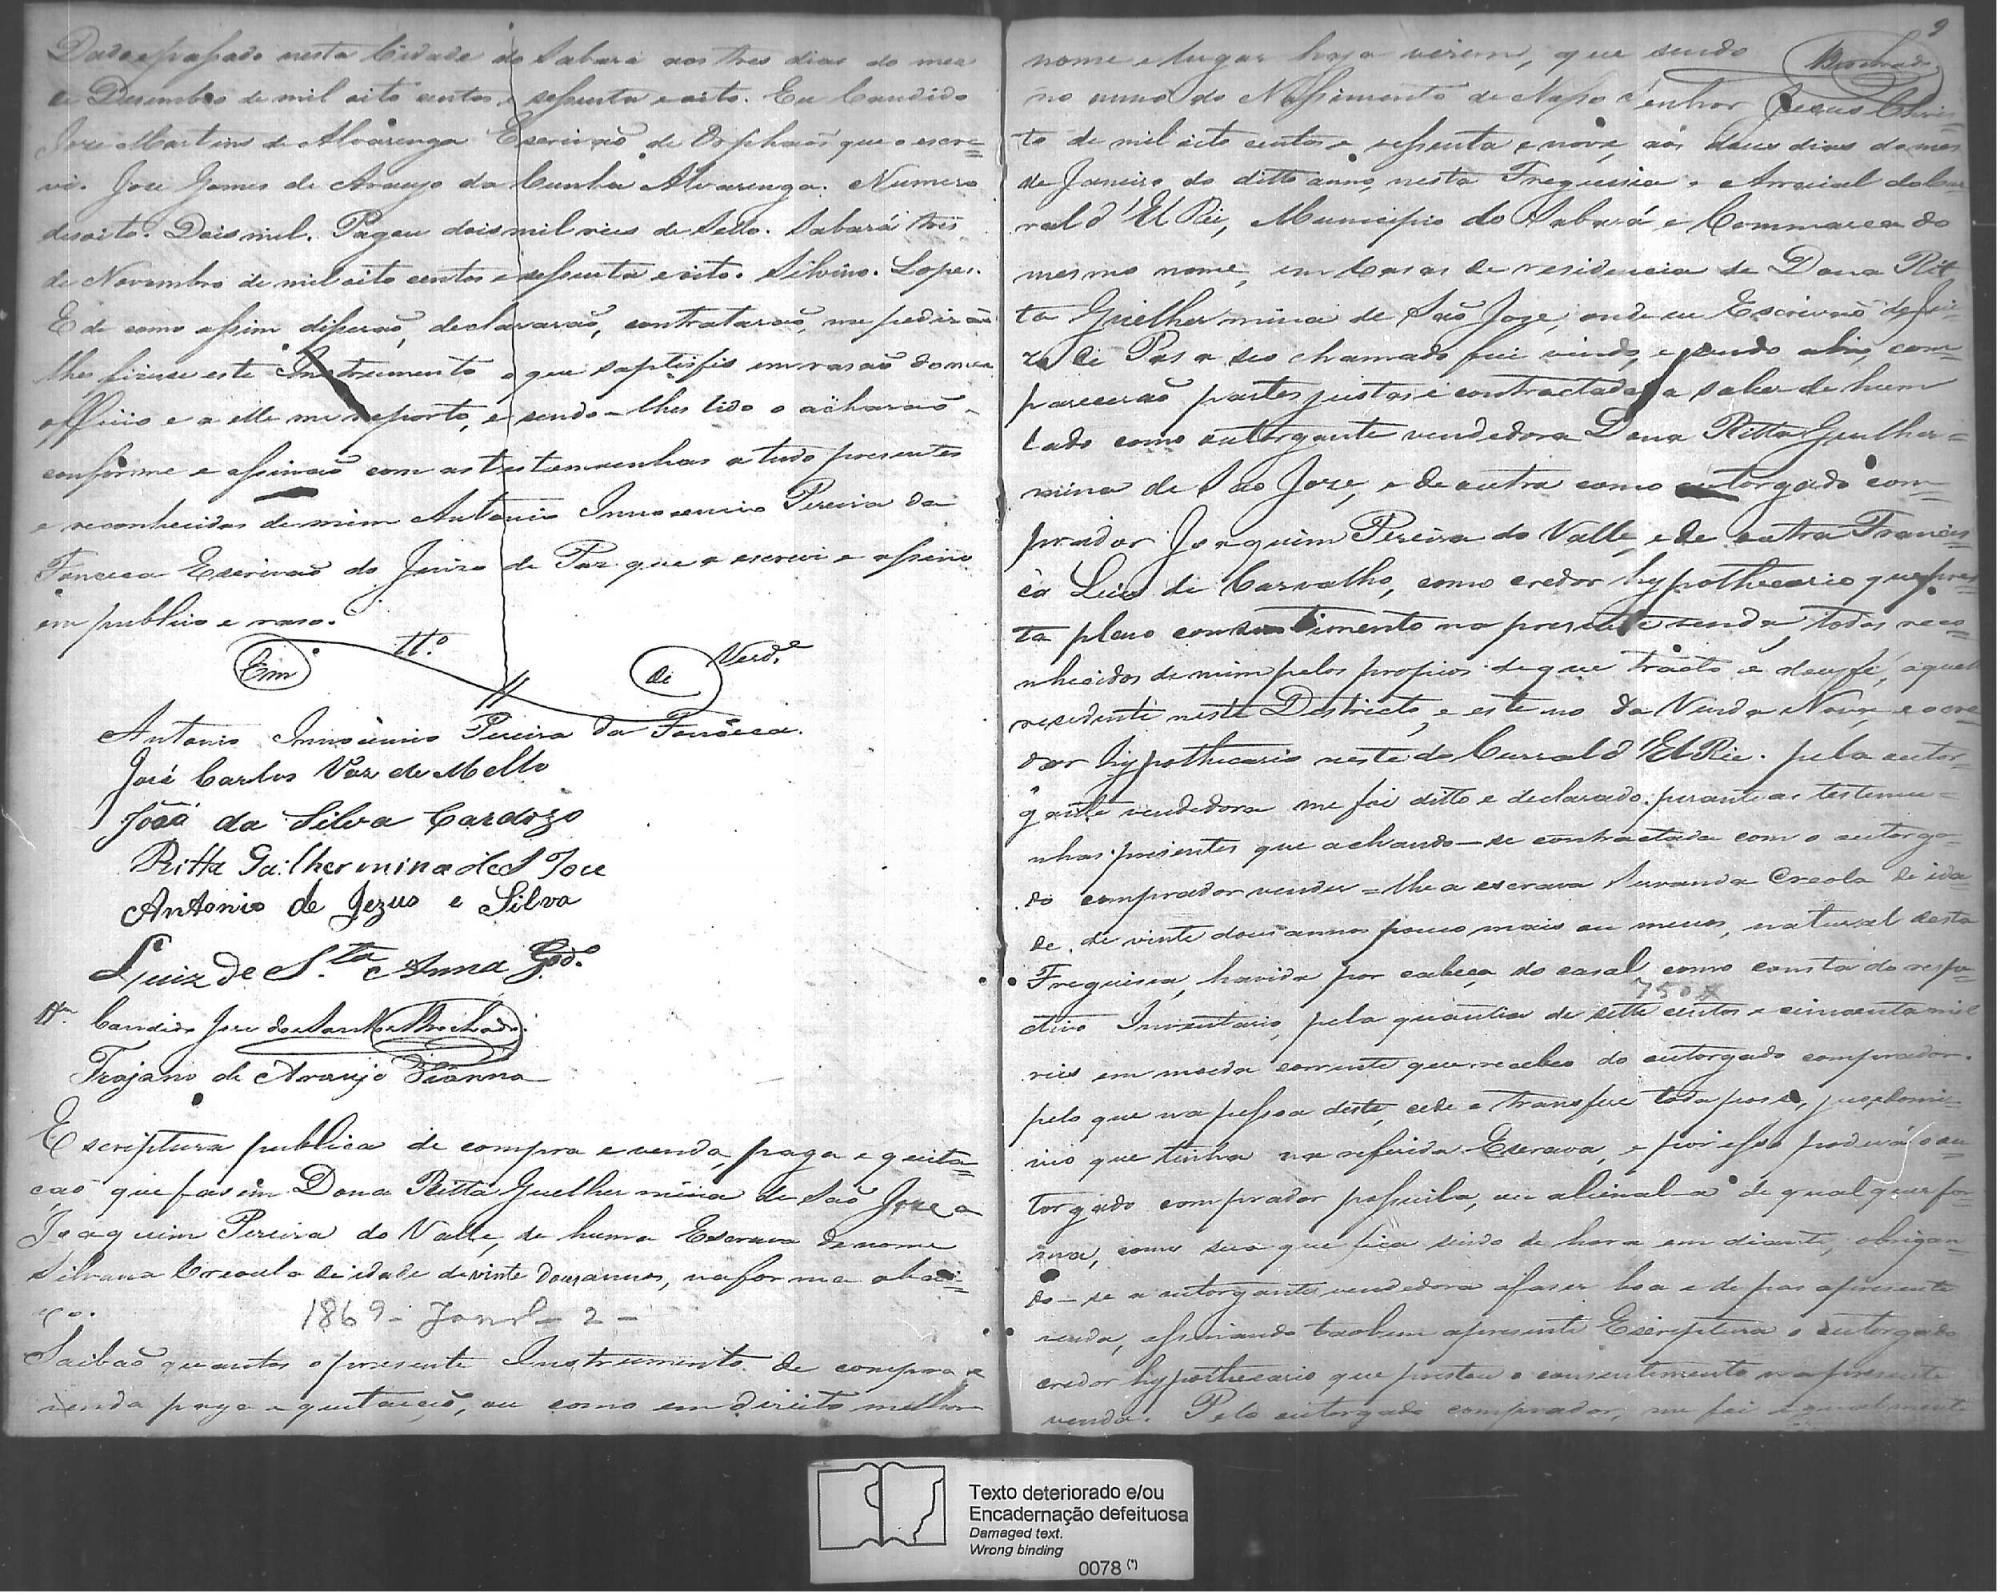 Dado e passado nesta Cidade do Sabará aos tres dias do mez
de Desembro de mil oito centos e sessenta e oito. Eu Candido
Jose Martins de Alvarenga Escrivaõ de Orphaõs que o escre=
vi. Jose Gomes de Araujo da Cunha Alvarenga. Numero
desoito. Dois mil. Pagou dois mil reis de Sello. Sabará tres
de Novembro de mil oito centos e sessenta e oito. Silvino. Lopes.
E de como assim disseraõ, declararaõ, contrataraõ, me pediraõ
lhes fizesse este Instrumento o que saptisfis em rasaõ do meu
officio e a elle me reporto, e sendo-lhes lido o acharaõ
conforme e assinaõ com as testemunhas a tudo presentes
e reconhecidas de mim Antonio Innocencio Pereira da
Fonseca Escrivaõ do Juizo de Paz que o escrevi e assino
em publico e raso.
Em tt.º de Verd.e
Antonio Innocencio Pereira da Fonseca.
José Carlos Vaz de Mello
João da Silva Cardozo
Ritta Gailhermina de S Joce
Antonio de Jezus e Silva
Luiz de S.ta Anna God.º
Candido Jose dos Santos Brochado
Trajano de Araujo Vianna
Escriptura publica de compra e venda, paga e quita=
çaõ que fasem Dona Ritta Guelhermina de Saõ Jose a
Joaquim Pereira do Valle, de huma Escrava de nome
Silvana Creoula de idade de vinte dous annos, na forma abai=
xo.
1869 - Janr.º - 2 -
Saibaõ quantos o presente Instrumento de compra e
venda paga e quitacçaõ, ou como em direito melhor
9
nome e lugar haja virem, que sendo
Brochado
no anno do Nassimento de Nosso Senhor Jesus Chris=
to de mil oito centos e sessenta e nove, aos dous dias do mes
de Janeiro do ditto anno, nesta Freguesia e Arraial do Cur
ral d'El Rei, Municipio do Sabará e Commarca do
mesmo nome, em Casas de residencia de Dona Rit
ta Guelhermina de Saõ Jose, onde eu Escrivaõ do Jui-
zo de Pas a seo chamado fui vindo, e sendo ahi, com-
pareceraõ partes justas e contractadas a saber de hum
lado como outorgante vendedora Dona Ritta Guelher=
mina de Saõ Jose, e de outra como outorgado com-
prador Joaquim Pereira do Valle, e de outra Francis-
co Luis de Carvalho, como credor hypothecario que pres
ta pleno consentimento na presente venda, todos reco-
nhecidos de mim pelos propios de que tracto e dou fé, aquel
residente neste Districto, e este no da Venda Nova, e o cre
dor hypothecario neste do Curral d'El Rei. pela outor-
gante vendedora me foi ditto e declarado perante as testemu=
nhas presentes que achando-se contractada com o outorga-
do comprador vender=lhe a escrava Servanda Creola de ida-
de de vinte dous annos pouco mais ou menos, natural desta
Freguisia, havida por cabeça do casal, como consta do respe-
ctivo Inventario, pela quantia de sette centos e cincoenta mil
750$
reis em moeda corrente que recebeo do outorgado comprador.
pelo que na pessoa deste, cede e transfere toda posse, jus e domi-
nio que tinha na referida Escrava, e por isso poderá o ou
torgado comprador possuila, ou alienal-a de qualquer for-
ma, como sua que fica sendo de hora em diante, obrigan-
do-se a outorgante vendedora afaser boa e de pas apresente
venda, assinando taobem apresente Escriptura o outorgado
credor hypothecario que prestou o consentimento na presente
venda. Pelo outorgado comprador, me foi igualmente